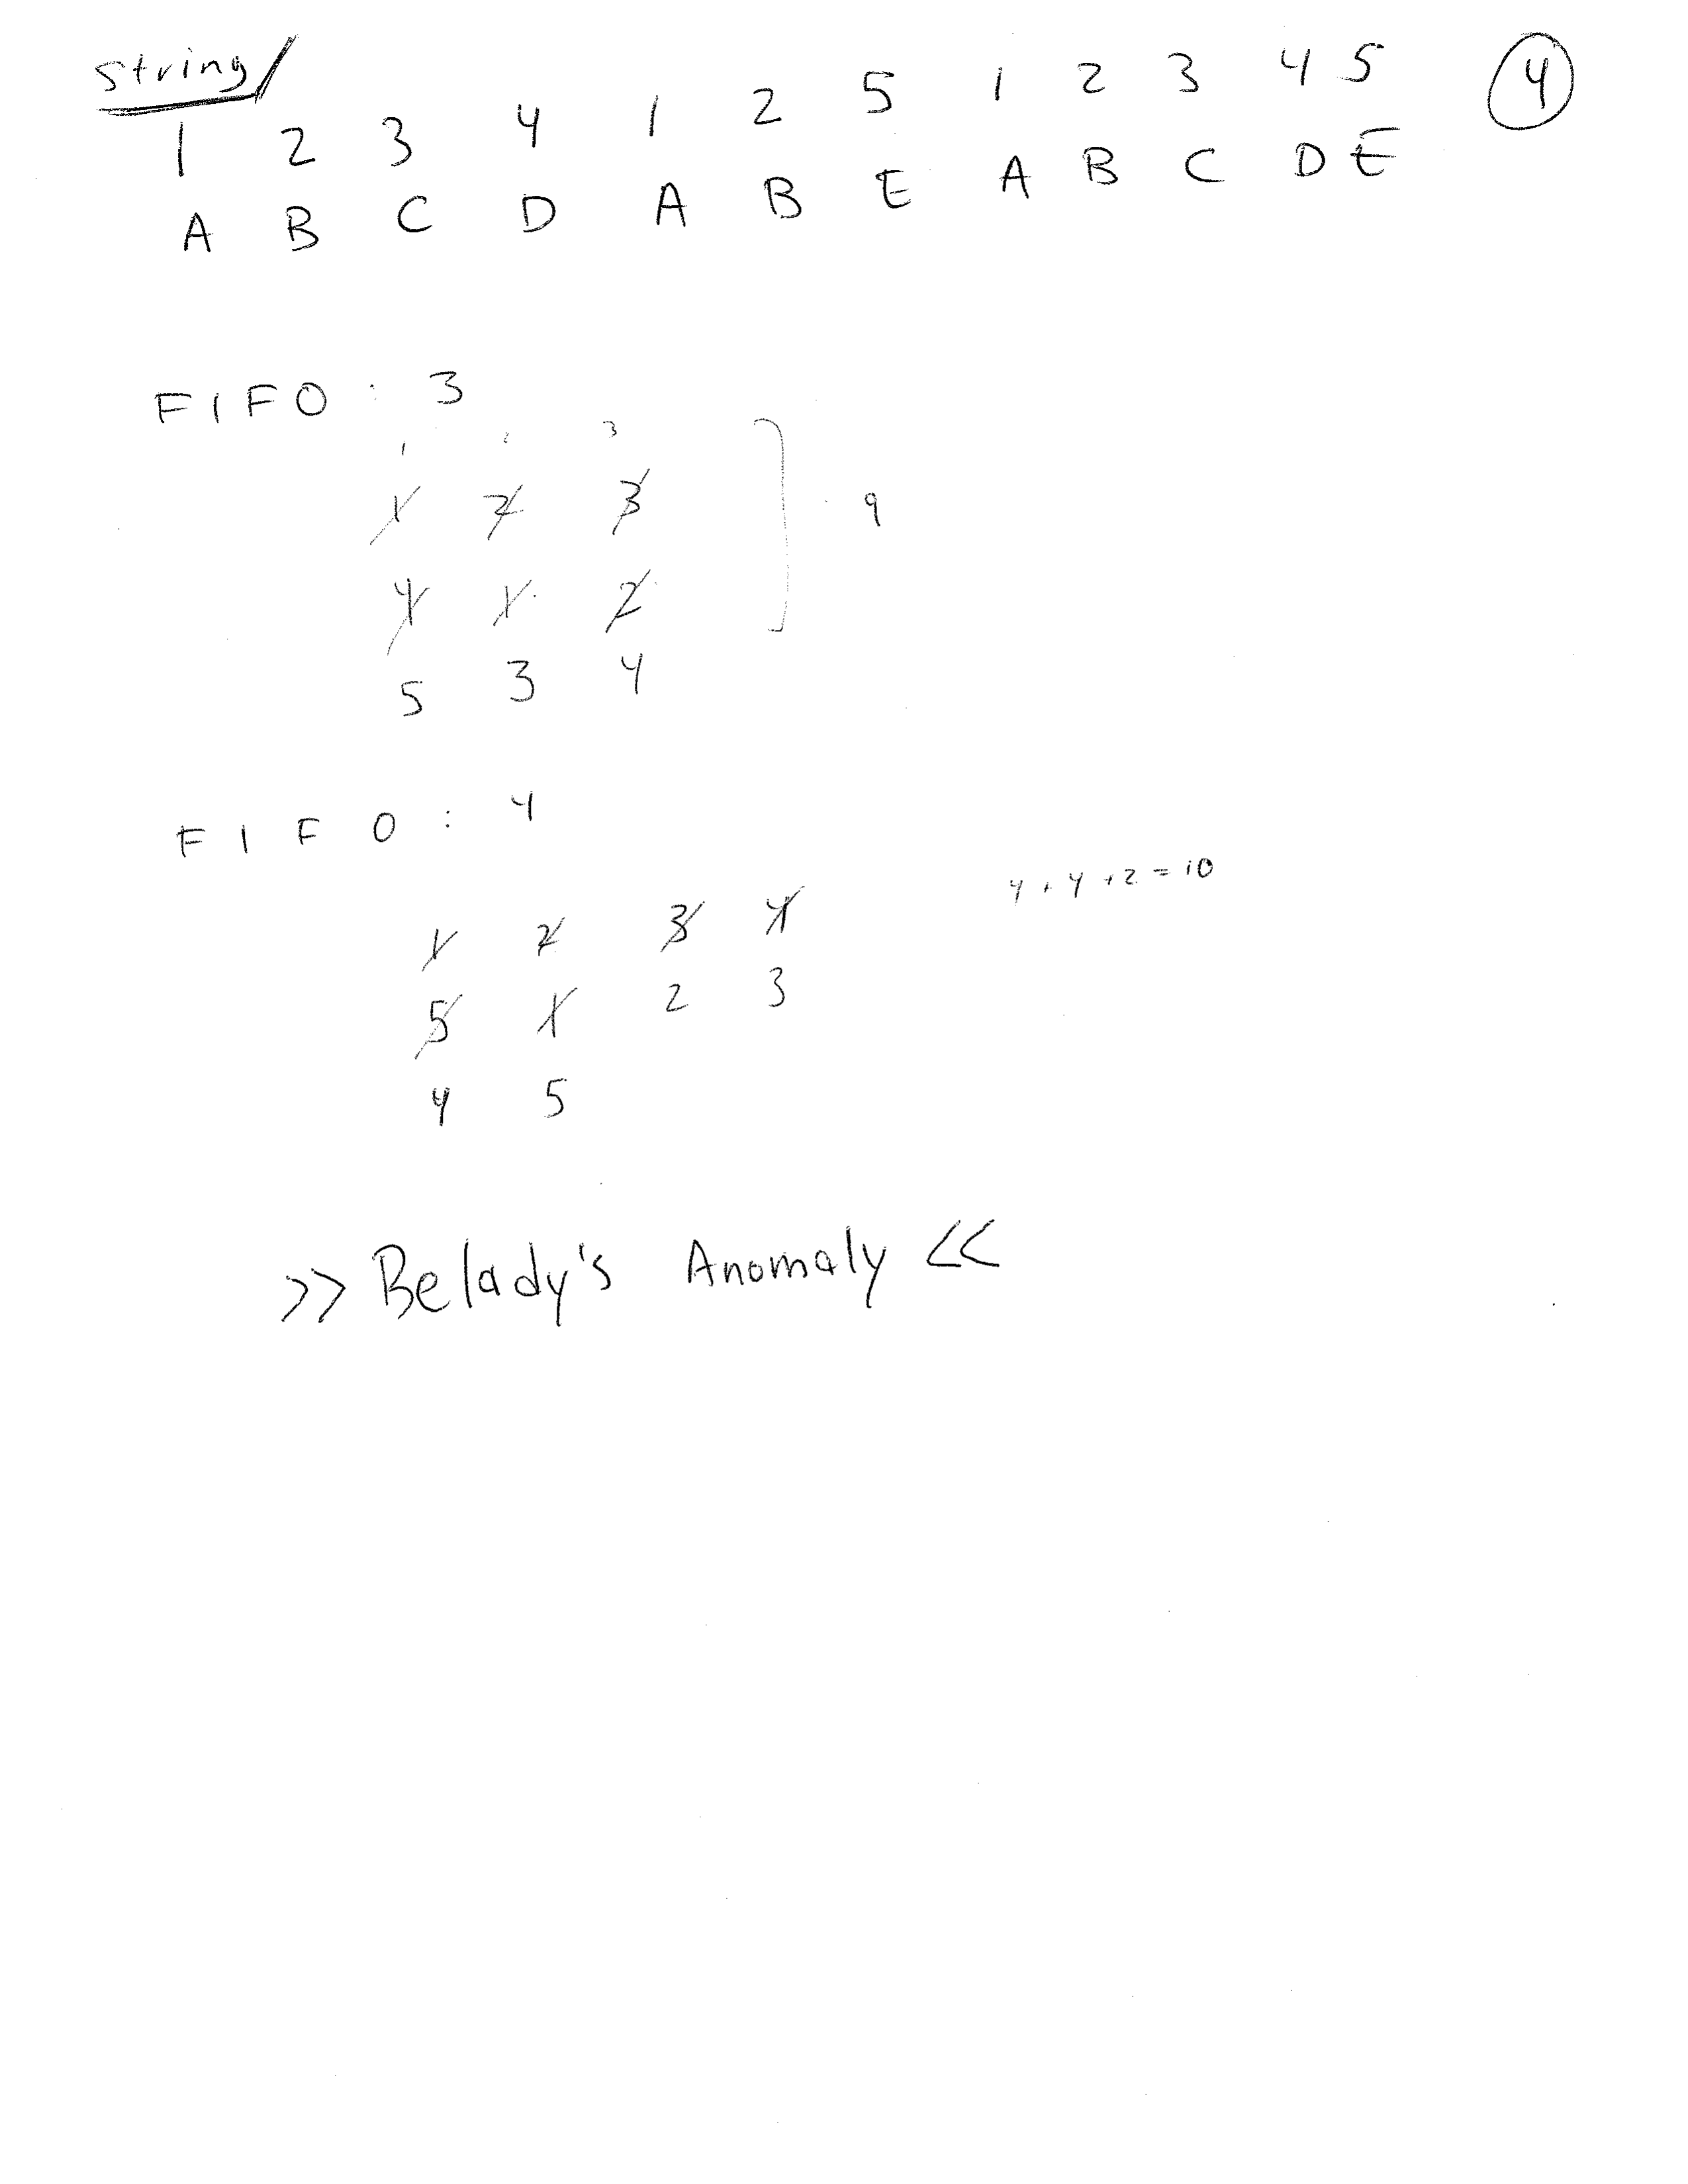 string
1 2 3 4 1 2 5 1 2 3 4 5 4
A B C D A B E A B C D E
FIFO : 3
1 2 3
1 2 3
9
4 1 2
5 3 4
FIFO : 4
4 + 4 + 2 = 10
1 2 3 4
5 1 2 3
4 5
>> Belady's Anomaly <<